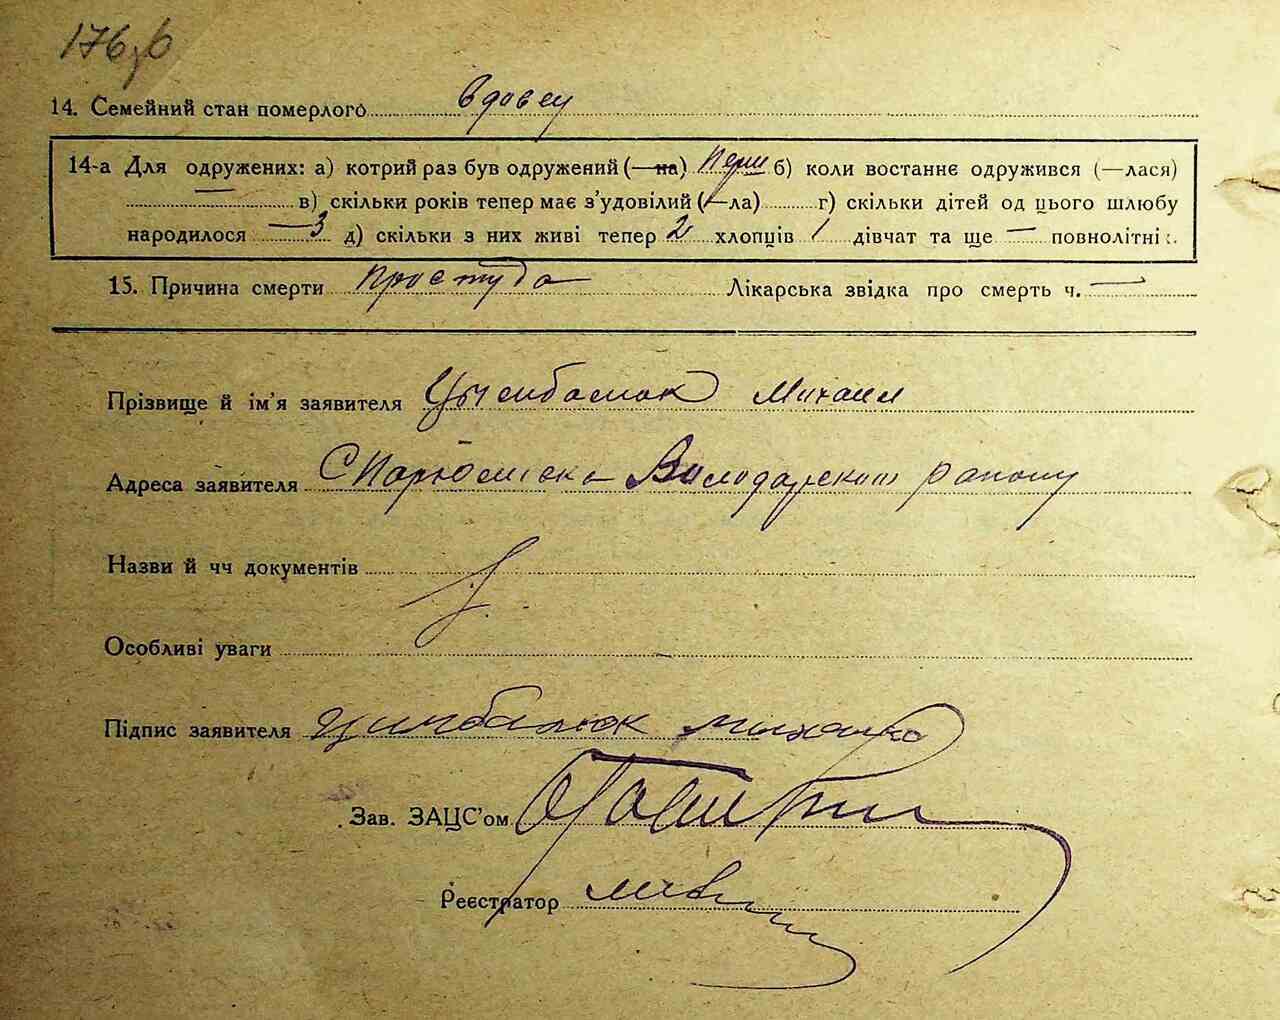 176 зв
14. Семейний стан померлого вдовец
14-а Для одружених: а) котрий раз був одружений (—на) перш б) коли востаннє одружився (—лася)
— в) скільки років тепер має з'удовілий (—ла) г) скільки дітей од цього шлюбу
народилося 3 д) скільки з них живі тепер 2 хлопців 1 дівчат та ще — повнолітні:.
15. Причина смерти простуда Лікарська звідка про смерть ч. —
Прізвище й ім'я заявителя Цымбалюк Михаил
Адреса заявителя С Володарского району
Назви й чч документів
Особливі уваги
Підпис заявителя Цимбалюк михайло
Зав. ЗАЦС'ом
Реєстратор